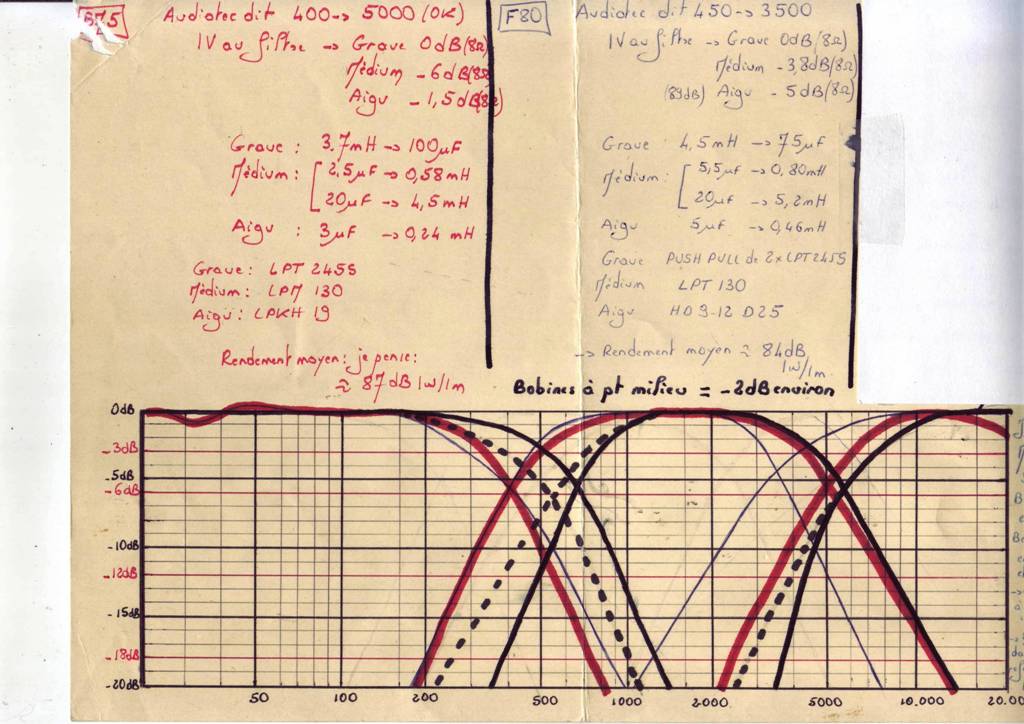 B75
Audiotec dit 400 -> 5000 (OK)
1V au filtre -> Grave 0dB (8Ω)
Médium - 6dB (8Ω
Aigu - 1,5dB (8Ω)
Grave : 3,7mH -> 100µF
Médium : 2,5µF -> 0,58mH
20µF -> 4,5mH
Aigu : 3µF -> 0,24 mH
Grave : LPT 245S
Médium : LPM 130
Aigu : LPKH 19
Rendement moyen : je pense :
≈ 87dB 1w/1m
F80
Audiotec dit 450 -> 3500
1V au filtre -> Grave 0dB (8Ω)
Médium - 3,8dB (8Ω)
(89dB) Aigu - 5dB (8Ω)
Grave 4,5mH -> 75µF
Médium : 5,5µF -> 0,80mH
20µF -> 5,2mH
Aigu 5µF -> 0,46mH
Grave PUSH PULL de 2x LPT245S
Médium LPT 130
Aigu HD 9-12 D25
-> Rendement moyen ≈ 84dB
1w/1m
Bobines à pt milieu = -2dB environ
0dB
-3dB
-5dB
-6dB
-10dB
-12dB
-15dB
-18dB
-20dB
50 100 200 500 1000 2000 5000 10.000 20.00